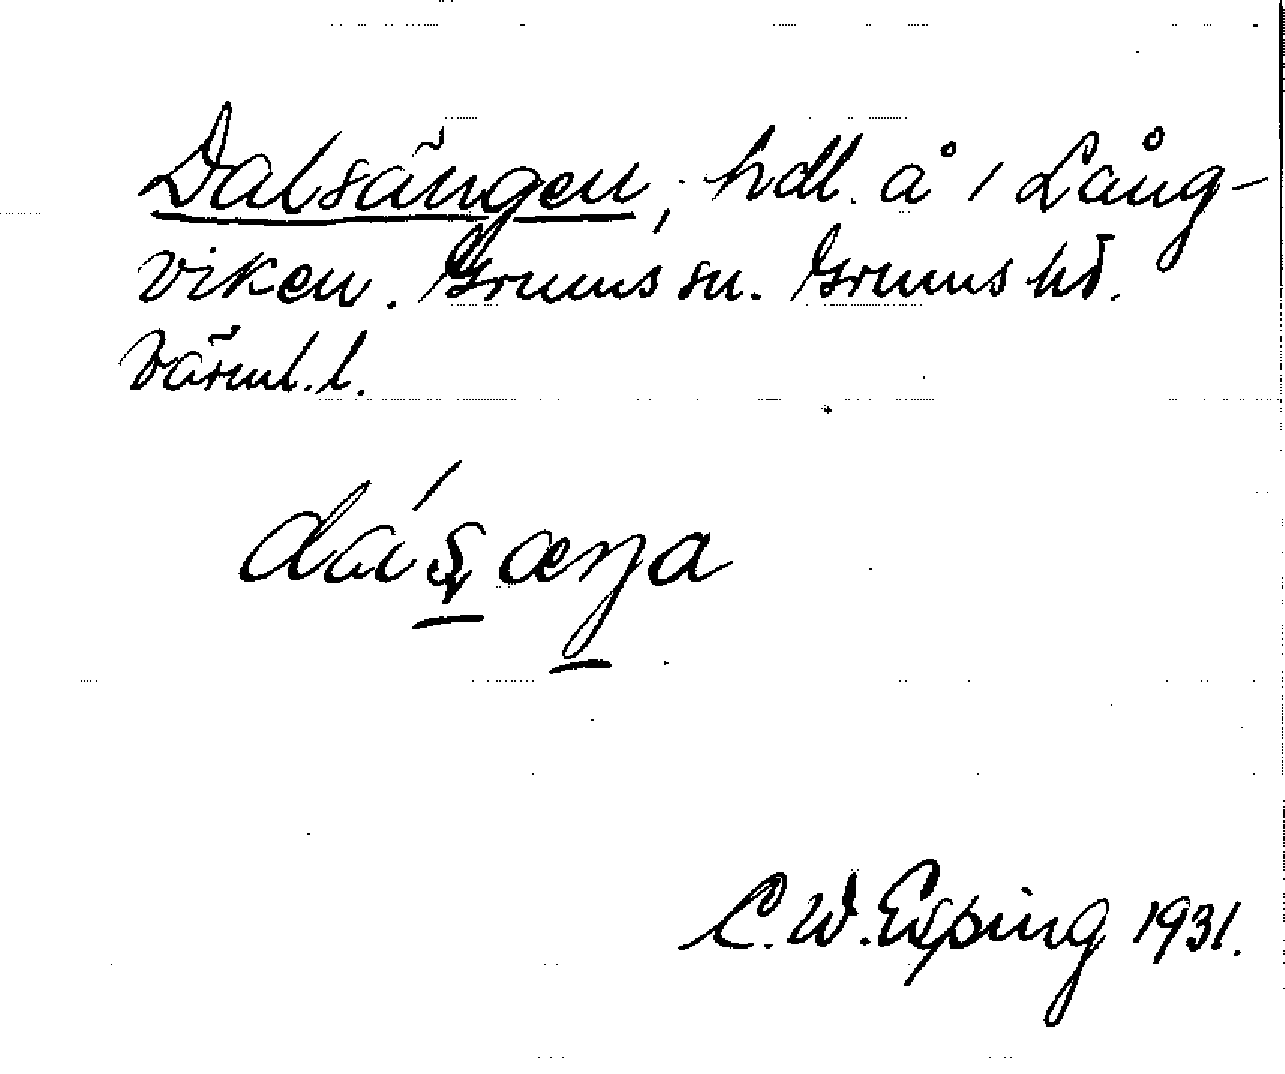 Dalsängen, hdl. å 1 Lång-
viken. Grums sn. Grums hd.
Värml. l.
C. W. Esping 1931.